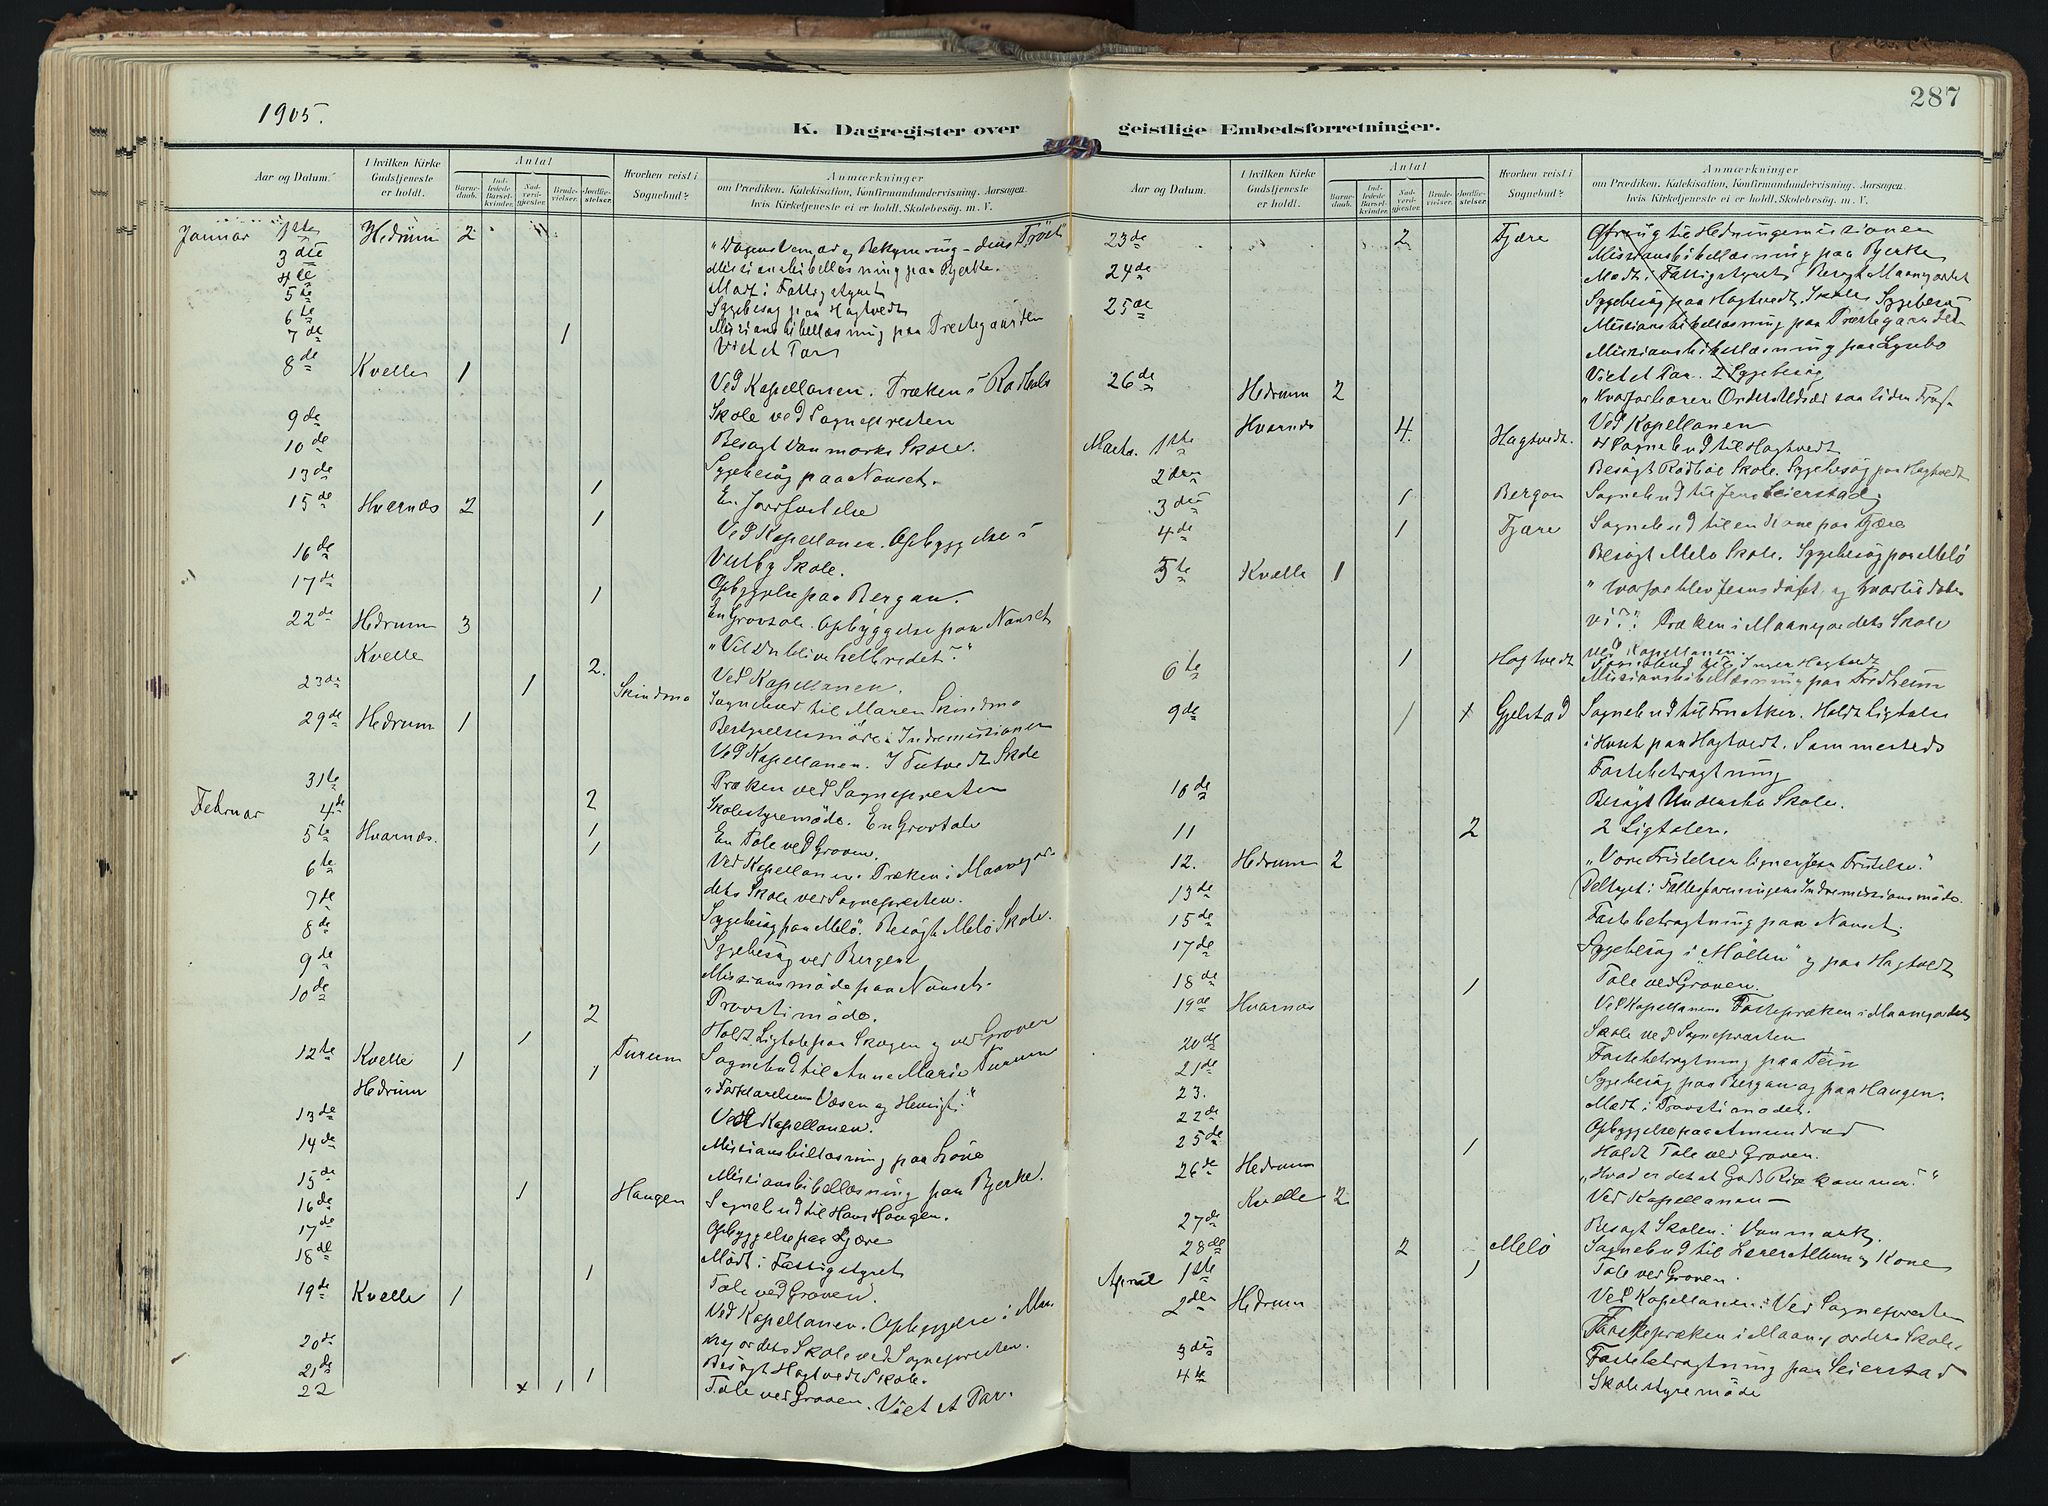 1905.
287
K. Dagregister over geistlige Embedsforretninger.
Aar og Datum.
I hvilken Kirke Gudstjeneste er holdt.
Antal
Barnedaab.
Indledede Barselkvinder.
Nadverdgjester.
Brudevielser.
Jordfæstelser.
Hvorhen reist i Sognebud?
Anmærkninger
om Prædiken, Katekisation, Konfirmandundervisning, Aarsagen,
hvis Kirketjeneste ei er holdt, Skolebesøg, m. V.
Januar 1ste Hedrum 2
3die Missionsbibellæsning paa Bjerke.
4de Mødt i Fattigstyret
5te Sygebesøg paa Hagtvedt
6te Missionsbibellæsning paa Prestegaarden
7de 1 Viet et Par
8de Kvelle 1 Ved Kapellanen. Præken i
Skole ved Sognepresten
9de
10de Besøgt Vanmarks Skole.
13de Sygebesøg paa Nanset.
15de Hvarnæs 2 1 En Jordfæstelse
1 Ved Kapellanen. Opbyggelse i
16de Skole.
17de Opbyggelse paa Bergan.
1 En Gravtale. Opbyggelse paa Nanset
22de Hedrum 3 "Vil Du blive helbredet?"
Kvelle 2. Ved Kapellanen.
23de 1 Skindmo Sognebud til Maren Skindmo
29de Hedrum 1 Bestyrelsesmöde i Indremissionen
Ved Kapellanen. I Tutvedt Skole
31te Præken ved Sognepresten
Februar 4de 2 Skolestyremöde. En Gravtale
5te Hvarnæs. 1 En Tale ved Graven.
6te 1 Ved Kapellanen. Præken i Maanejor-
7de dets Skole ved Sognepresten.
8de Sygebesøg paa Melö. Besøgt Melö Skole.
9de Sygebesøg ved Bergene
10de Missionsmöde paa Nanset.
2 Provstimöde.
1 Holdt Ligtale paa Skogen og ved Graven
12te Kvelle 1 Turum Sognebud til Anne Marie Turum
Hedrum 1 "Forklarelsens Væsen og Hensigt."
13de Ved Kapellanen.
14de
15de Missionsbibellæsning paa Bjerke.
16de 1 Haugen Sognebud til Hans Haugen.
17de Opbyggelse paa Fjære
18de Mödt i Fattigstyret
19de Kvelle 1 1 Tale ved Graven.
Ved Kapellanen. Opbyggelse i Maa
20de nejordets Skole ved Sognepresten.
21de Besøgt Hagtvedt Skole.
22 x 1 1 Tale ved Graven. Viet et Par.
K. Dagregister over geistlige Embedsforretninger.
Aar og Datum.
I hvilken Kirke Gudstjeneste er holdt.
Antal
Barnedaab.
Indledede Barselkvinder.
Nadverdgjester.
Brudevielser.
Jordfæstelser.
Hvorhen reist i Sognebud?
Anmærkninger
om Prædiken, Katekisation, Konfirmandundervisning, Aarsagen,
hvis Kirketjeneste ei er holdt, Skolebesøg, m. V.
23de 2 Fjære til Hedningemissionen
Missionsbibellæsning paa Bjerke
24de Mødt i Fattigstyret. Besøgt Maanejordet
25de Sygebesøg paa Hagtvedt Skole. Sygebesøg
Missionsbibellæsning paa Præstegaarden
Missionsbibellæsning paa
26de Viet et Par. 2 Sygebesøg
Hedrum 2
Hvarnæs 4. Ved Kapellanen
Marts. 1ste Hagtvedt. Sognebud til Hagtvedt
2den Besøgt Skole. Sygebesøg paa Hagtvedt
3die 1 Bergan Sognebud til Jens Seierstad
4de 1 Fjære Sognebud til en Kone paa Fjære
Besøgt Melö Skole. Sygebesøg paa Melö
5te Kvelle 1 "Hvorfor blev Jesus döpt, og hvortil döbes
vi?" Præken i Maanejordets Skole
ved Kapellanen.
6te 1 Hagtvedt Sognebud til Inger Hagtvedt
Missionsbibellæsning paa Fredheim
9de 1 x Gjelstad Sognebud til Fru Aker. Holdt Ligtale
i Huset paa Hagtvedt.
Fastebetragtning
10de Besøgt Skole.
11 2 2 Ligtaler.
12. Hedrum 2 "Vore Fristelser ligner Jesu Fristelse."
13de Deltaget i Fællesforeningens Indremissionsmöde.
15de Fastebetragtning paa Nanset.
17de Sygebesøg i "Möllen" og paa Hagtvedt
18de 1 Tale ved Graven.
19de Hvarnæs Ved Kapellanen. Fastepræken i Maanejordets
Skole ved Sognepræsten
20de Fastebetragtning paa
21de Sygebesøg paa Bergan og paa Haugen.
23. Mødt i Provstimødet.
22de Opbyggelse paa Amundrød
25de 1 Holdt Tale ved Graven.
26de Hedrum "Hvad er det at Guds Rige kommer?"
Kvelle 2 Ved Kapellanen
27de Besøgt Skolen i Vanmark.
28de 2 Melö Sognebud til Lærer Allum og Kone
April 1ste 1 Tale ved Graven.
2den Hedrum Ved Kapellanen. Ved Sognepresten
Fastepræken i Maanejordets Skole
3die Fastebetragtning paa Seierstad
4de Skolestyremöde